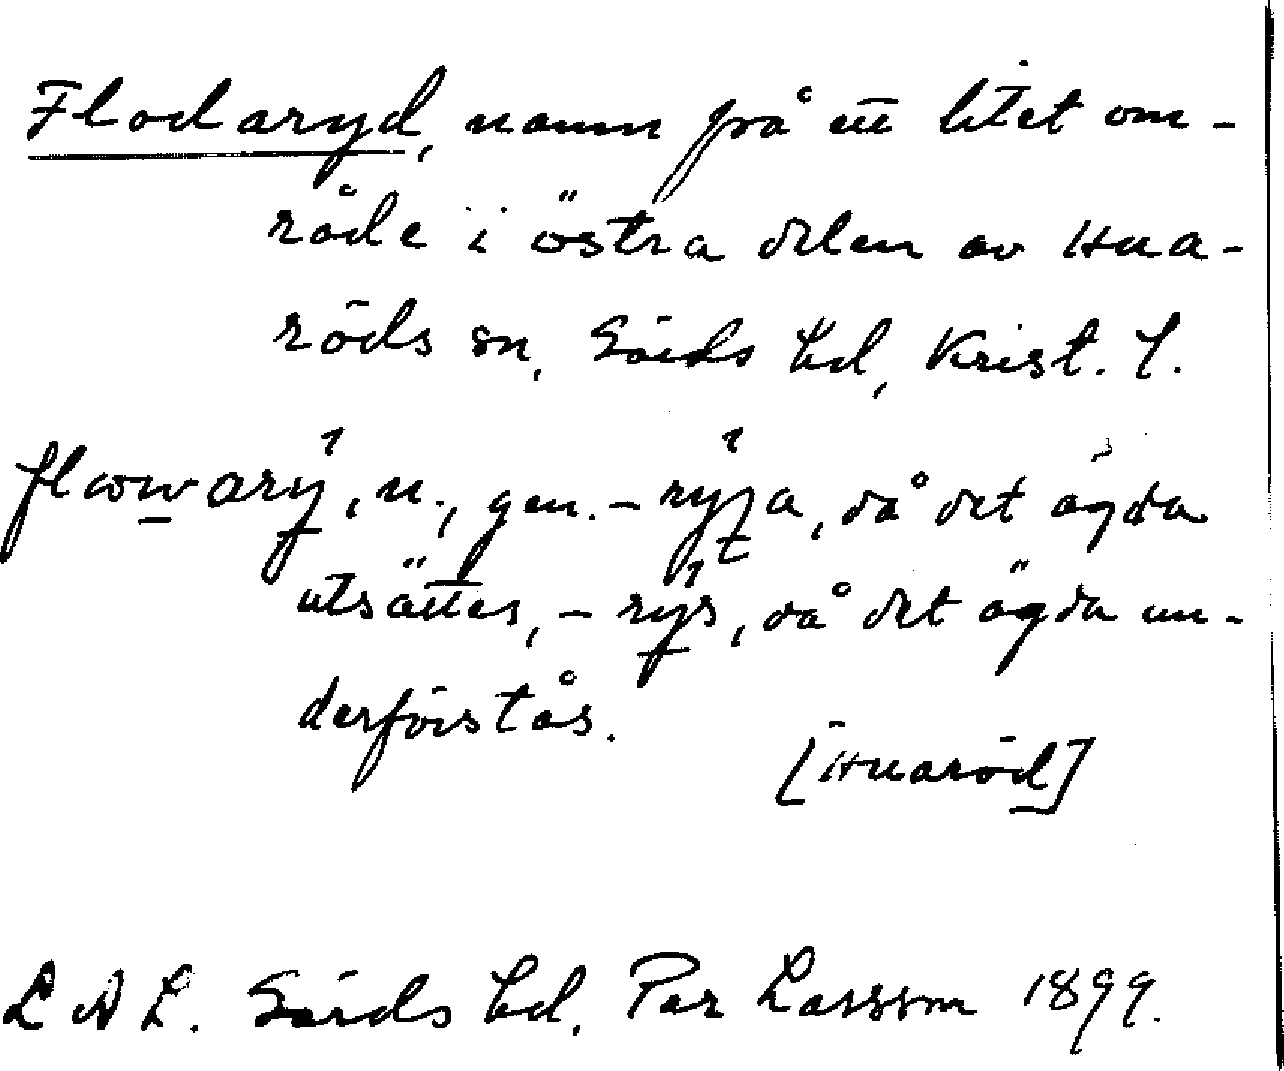 Flodaryd, namn på ett litet om-
råde i östra delen av Hua-
röds sn, Gärds hd, Krist. l.
n., gen. - då det ägda
utsättes, - då det ägda un-
derförstås.
[Huaröd]
L A L. Gärds hd. Per Larsson 1899.